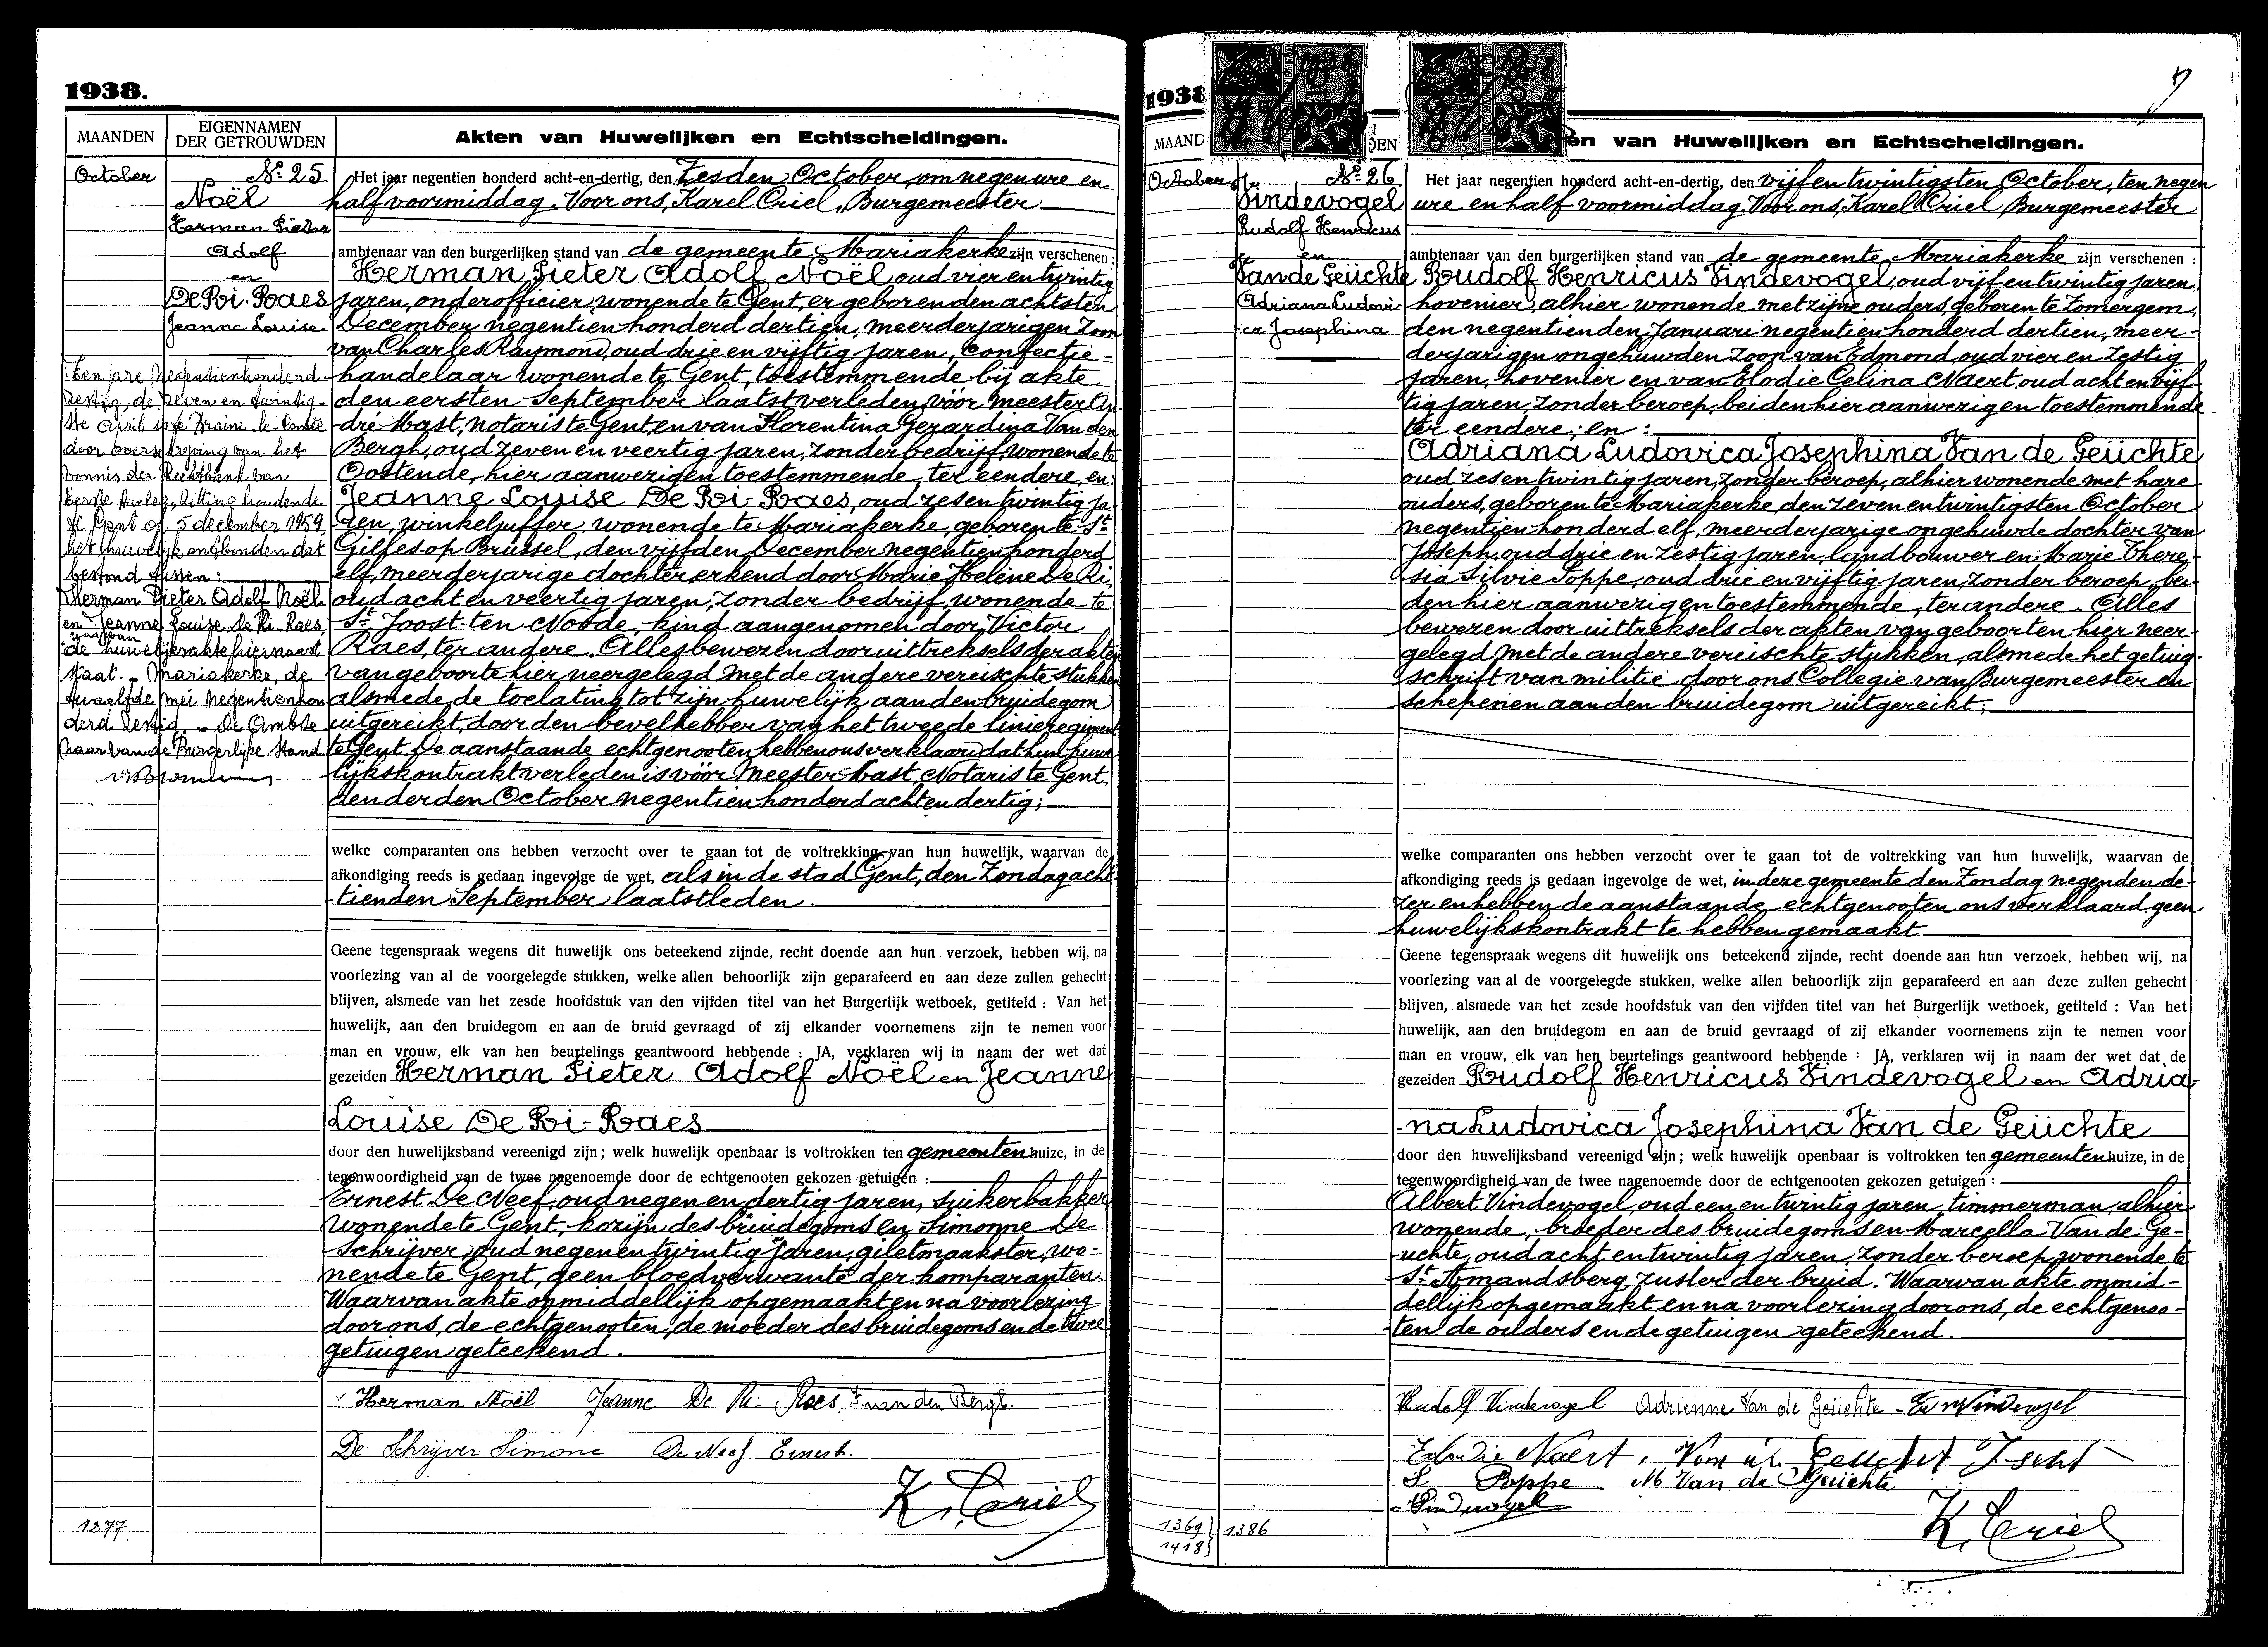 1938.
MAANDEN
EIGENNAMEN
DER GETROUWDEN
Akten van Huwelijken en Echtscheidingen.
October
No 25
Noël
Herman Pieter
Adolf
en
De Ri-Raes
Jeanne Louise.
Ten jare Negentienhonderd
zestig, de zeven en twintig-
ste April is te Braine-le-Comte
door overschrijving van het
vonnis der Rechtbank van
Eerste Aanleg, zitting houdende
te Gent op 5 december 1959
het huwelijk ontbonden dat
bestond tussen:
Herman Pieter Adolf Noël
en Jeanne Louise De Ri-Raes,
waarvan
de huwelijksakte hiernaast
staat. - Mariakerke, de
twaalfde Mei Negentienhon
derd zestig. - De Ambte
naar van de Burgerlijke Stand
Het jaar negentien honderd acht-en-dertig, den Zesden October, om negen ure en
half voormiddag. Voor ons, Karel Criel, Burgemeester
ambtenaar van den burgerlijken stand van de gemeente Mariakerke zijn verschenen:
Herman Pieter Adolf Noël, oud vier en twintig
jaren, onderofficier, wonende te Gent, er geboren den achtsten
December negentien honderd dertien, meerderjarigen zoon
van Charles Raymond, oud drie en vijftig jaren, confectie-
handelaar wonende te Gent, toestemmende bij akte
den eersten September laatst verleden vóór Meester An-
dré Mast, notaris te Gent, en van Florentina Gerardina Van den
Bergh, oud zeven en veertig jaren, zonder bedrijf, wonende te
Oostende, hier aanwezig en toestemmende, ter eendere, en:
Jeanne Louise De Ri-Raes, oud zes en twintig ja-
ren, winkeljuffer, wonende te Mariakerke, geboren te St
Gilles op Brussel, den vijfden December negentien honderd
elf, meerderjarige dochter, erkend door Marie Helène De Ri,
oud acht en veertig jaren, zonder bedrijf, wonende te
St Joost-ten-Noode, kind aangenomen door Victor
Raes, ter andere. Alles bewezen door uittreksels der akten
van geboorte hier neergelegd met de andere vereischte stukken
alsmede de toelating tot zijn huwelijk aan den bruidegom
uitgereikt, door den bevelhebber van het tweede linieregiment
te Gent. De aanstaande echtgenooten hebben ons verklaard dat hun huwe-
lijkskontrakt verleden is vóór Meester Mast, Notaris te Gent,
den derden October negentien honderd acht en dertig;
welke comparanten ons hebben verzocht over te gaan tot de voltrekking van hun huwelijk, waarvan de
afkondiging reeds is gedaan ingevolge de wet, als in de stad Gent, den Zondag acht-
tienden September laatstleden.
Geene tegenspraak wegens dit huwelijk ons beteekend zijnde, recht doende aan hun verzoek, hebben wij, na
voorlezing van al de voorgelegde stukken, welke allen behoorlijk zijn geparafeerd en aan deze zullen gehecht
blijven, alsmede van het zesde hoofdstuk van den vijfden titel van het Burgerlijk wetboek, getiteld : Van het
huwelijk, aan den bruidegom en aan de bruid gevraagd of zij elkander voornemens zijn te nemen voor
man en vrouw, elk van hen beurtelings geantwoord hebbende : JA, verklaren wij in naam der wet dat
gezeiden Herman Pieter Adolf Noël en Jeanne
Louise De Ri-Raes
door den huwelijksband vereenigd zijn; welk huwelijk openbaar is voltrokken ten gemeentenhuize, in de
tegenwoordigheid van de twee nagenoemde door de echtgenooten gekozen getuigen :
Ernest De Neef, oud negen en dertig jaren, suikerbakker,
wonende te Gent, kozijn des bruidegoms en Simonne De
Schrijver, oud negen en twintig jaren, giletmaakster, wo-
nende te Gent, geen bloedverwante der komparanten.
Waarvan akte onmiddellijk opgemaakt en na voorlezing
door ons, de echtgenooten, de moeder des bruidegoms en de twee
getuigen geteekend.
Herman Noël Jeanne De Ri-Raes F. van den Bergh.
De Schrijver Simone De Neef Ernest.
K. Criel
1277
1938
MAAND
DEN
en van Huwelijken en Echtscheidingen.
October
No 26
Vindevogel
Rudolf Henricus
en
Van de Geüchte
Adriana Ludovi-
ca Josephina
Het jaar negentien honderd acht-en-dertig, den vijf en twintigsten October, ten negen
ure en half voormiddag. Voor ons, Karel Criel, Burgemeester
ambtenaar van den burgerlijken stand van de gemeente Mariakerke zijn verschenen :
Rudolf Henricus Vindevogel, oud vijf en twintig jaren,
hovenier, alhier wonende met zijne ouders, geboren te Zomergem,
den negentienden Januari negentien honderd dertien, meer-
derjarigen ongehuwden zoon van Edmond, oud vier en zestig
jaren, hovenier en van Elodie Celina Naert, oud acht en vijf-
tig jaren, zonder beroep, beiden hier aanwezig en toestemmende
ter eendere; en:
Adriana Ludovica Josephina Van de Geüchte
oud zes en twintig jaren, zonder beroep, alhier wonende met hare
ouders, geboren te Mariakerke, den zeven en twintigsten October
negentien honderd elf, meerderjarige ongehuwde dochter van
Joseph, oud drie en zestig jaren, landbouwer en Marie There-
sia Silvie Poppe, oud drie en vijftig jaren, zonder beroep, bei-
den hier aanwezig en toestemmende, ter andere. Alles
bewezen door uittreksels der akten van geboorten hier neer-
gelegd met de andere vereischte stukken, alsmede het getuig-
schrift van militie door ons Collegie van Burgemeester en
schepenen aan den bruidegom uitgereikt;
welke comparanten ons hebben verzocht over te gaan tot de voltrekking van hun huwelijk, waarvan de
afkondiging reeds is gedaan ingevolge de wet, in deze gemeente den Zondag negenden de-
zer en hebben de aanstaande echtgenooten ons verklaard geen
huwelijkskontrakt te hebben gemaakt.
Geene tegenspraak wegens dit huwelijk ons beteekend zijnde, recht doende aan hun verzoek, hebben wij, na
voorlezing van al de voorgelegde stukken, welke allen behoorlijk zijn geparafeerd en aan deze zullen gehecht
blijven, alsmede van het zesde hoofdstuk van den vijfden titel van het Burgerlijk wetboek, getiteld : Van het
huwelijk, aan den bruidegom en aan de bruid gevraagd of zij elkander voornemens zijn te nemen voor
man en vrouw, elk van hen beurtelings geantwoord hebbende : JA, verklaren wij in naam der wet dat de
gezeiden Rudolf Henricus Vindevogel en Adria-
na Ludovica Josephina Van de Geüchte
door den huwelijksband vereenigd zijn; welk huwelijk openbaar is voltrokken ten gemeentenhuize, in de
tegenwoordigheid van de twee nagenoemde door de echtgenooten gekozen getuigen :
Albert Vindevogel, oud een en twintig jaren, timmerman, alhier
wonende, broeder des bruidegoms en Marcella Van de Ge-
uchte, oud acht en twintig jaren, zonder beroep, wonende te
St Amandsberg, zuster der bruid. Waarvan akte onmid-
dellijk opgemaakt en na voorlezing door ons, de echtgenoo-
ten de ouders en de getuigen geteekend.
Rudolf Vindevogel Adrienne Van de Geüchte - Ed Vindevogel
Elodie Naert,
S Poppe M Van de Geüchte
Vindevogel
K. Criel
1369
1418
1386